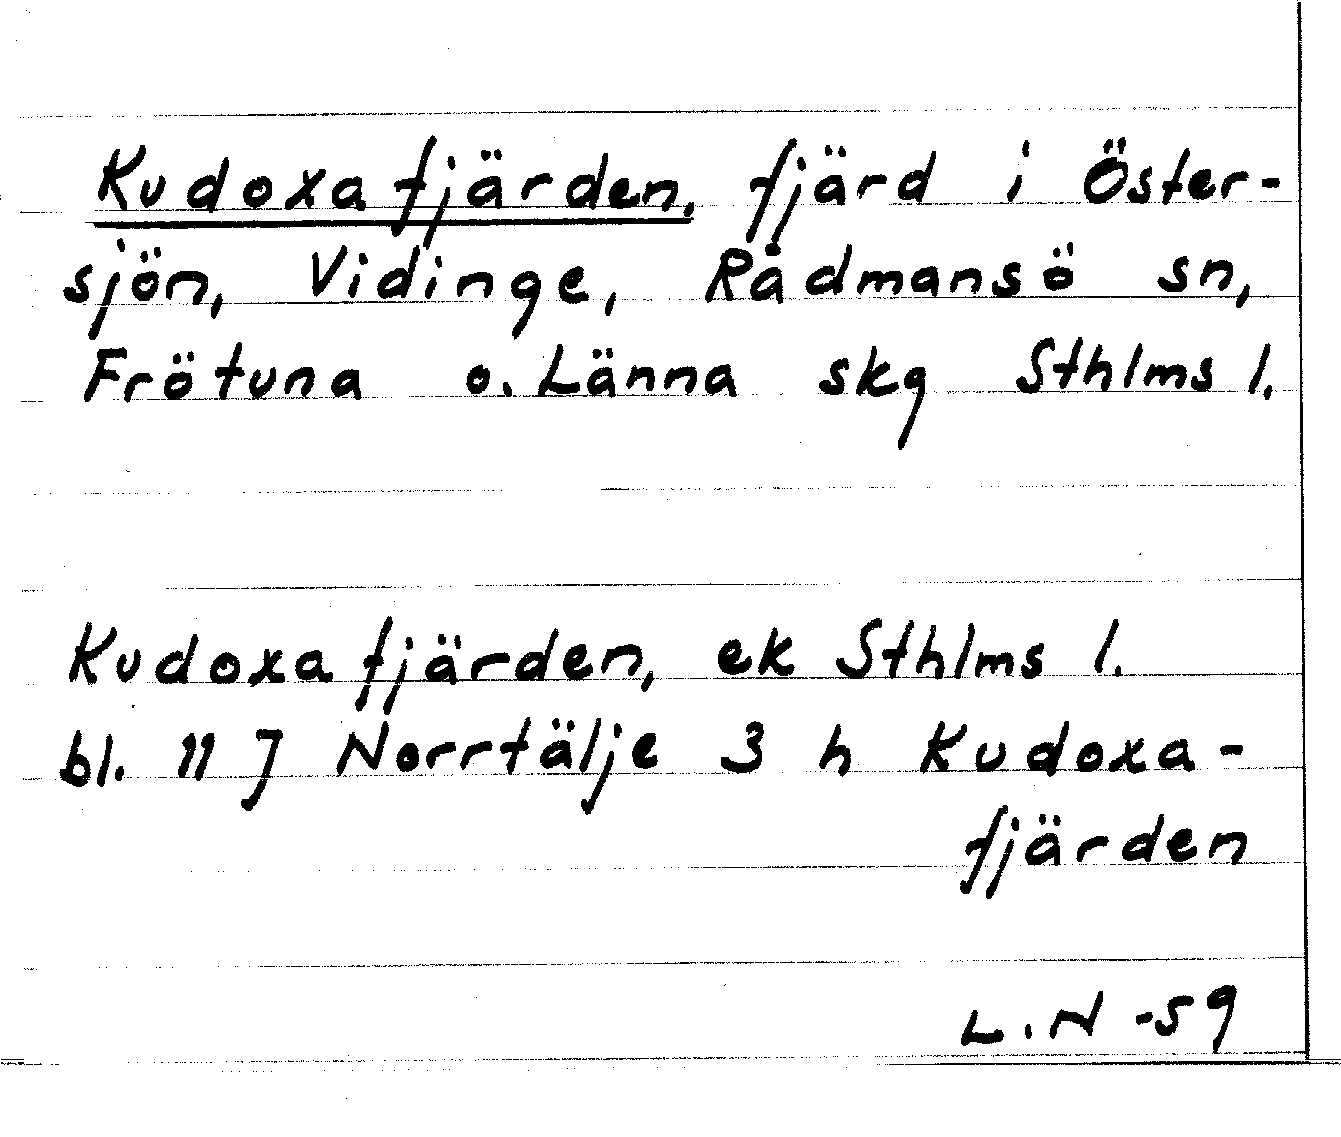 Kudoxafjärden, fjärd i Öster-
sjön, Vidinge, Rådmansö sn,
Frötuna o. Länna skg Sthlms l.
Kudoxafjärden, ek Sthlms l.
bl. 11 J Norrtälje 3 h Kudoxa-
fjärden
L.N -59